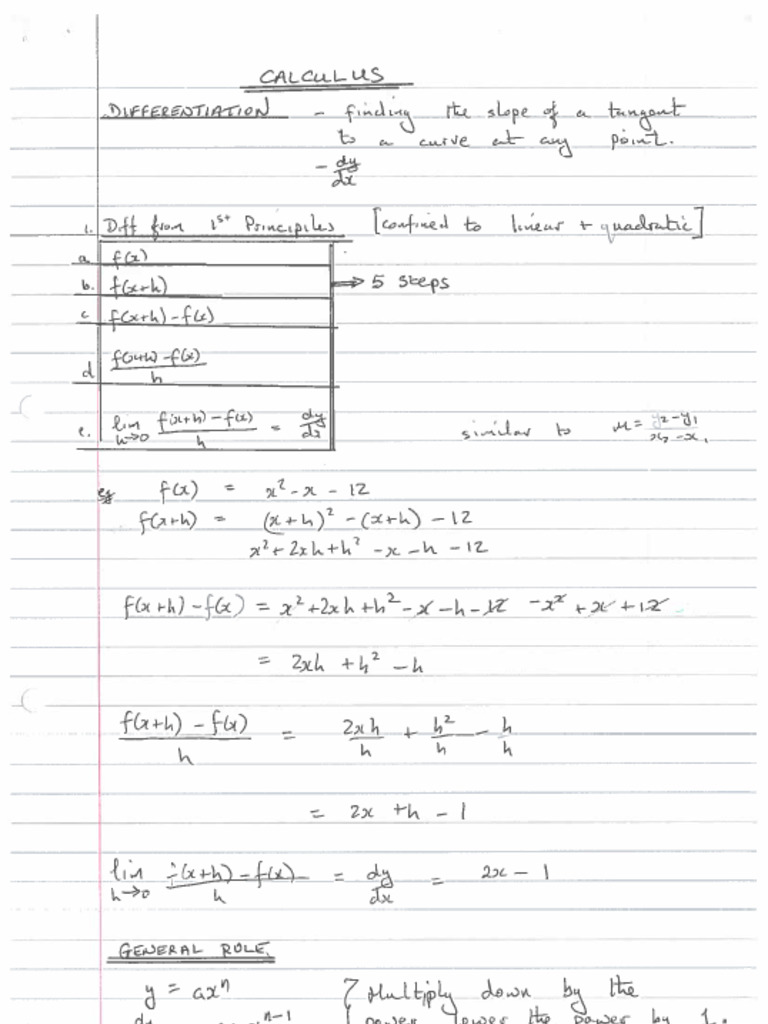 CALCULUS
DIFFERENTIATION - finding the slope of a tangent
to a curve at any point.
- dy/dx
1. Diff from 1st Principiles [confined to linear + quadratic]
a. f(x)
b. f(x+h) → 5 steps
c f(x+h) - f(x)
d (f(x+h) - f(x))/h
e. lim h→0 (f(x+h) - f(x))/h = dy/dx similar to m = (y2 - y1)/(x2 - x1)
eg f(x) = x² - x - 12
f(x+h) = (x+h)² - (x+h) - 12
x² + 2xh + h² - x - h - 12
f(x+h) - f(x) = x² + 2xh + h² - x - h - 12 - x² + x + 12
= 2xh + h² - h
(f(x+h) - f(x))/h = 2xh/h + h²/h - h/h
= 2x + h - 1
lim h→0 (f(x+h) - f(x))/h = dy/dx = 2x - 1
GENERAL RULE.
y = axⁿ Multiply down by the
dy n-1 power lower the power by 1.